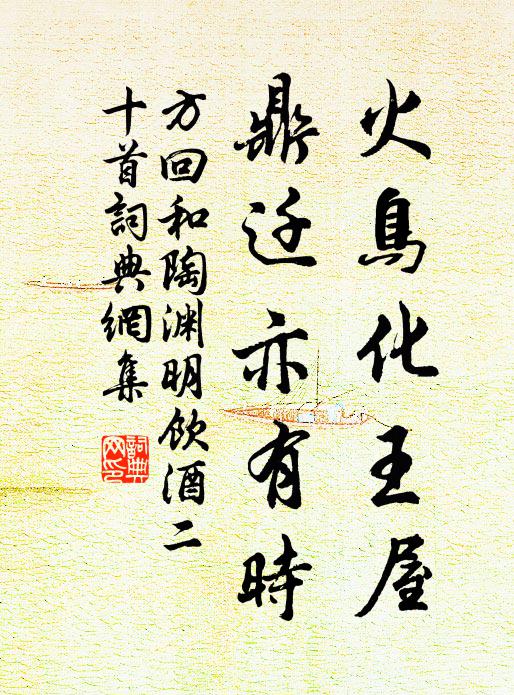 火鳥化王屋
鼎迁亦有時
方回和陶渊明飲酒二
十首詞典網集
詞典
网印